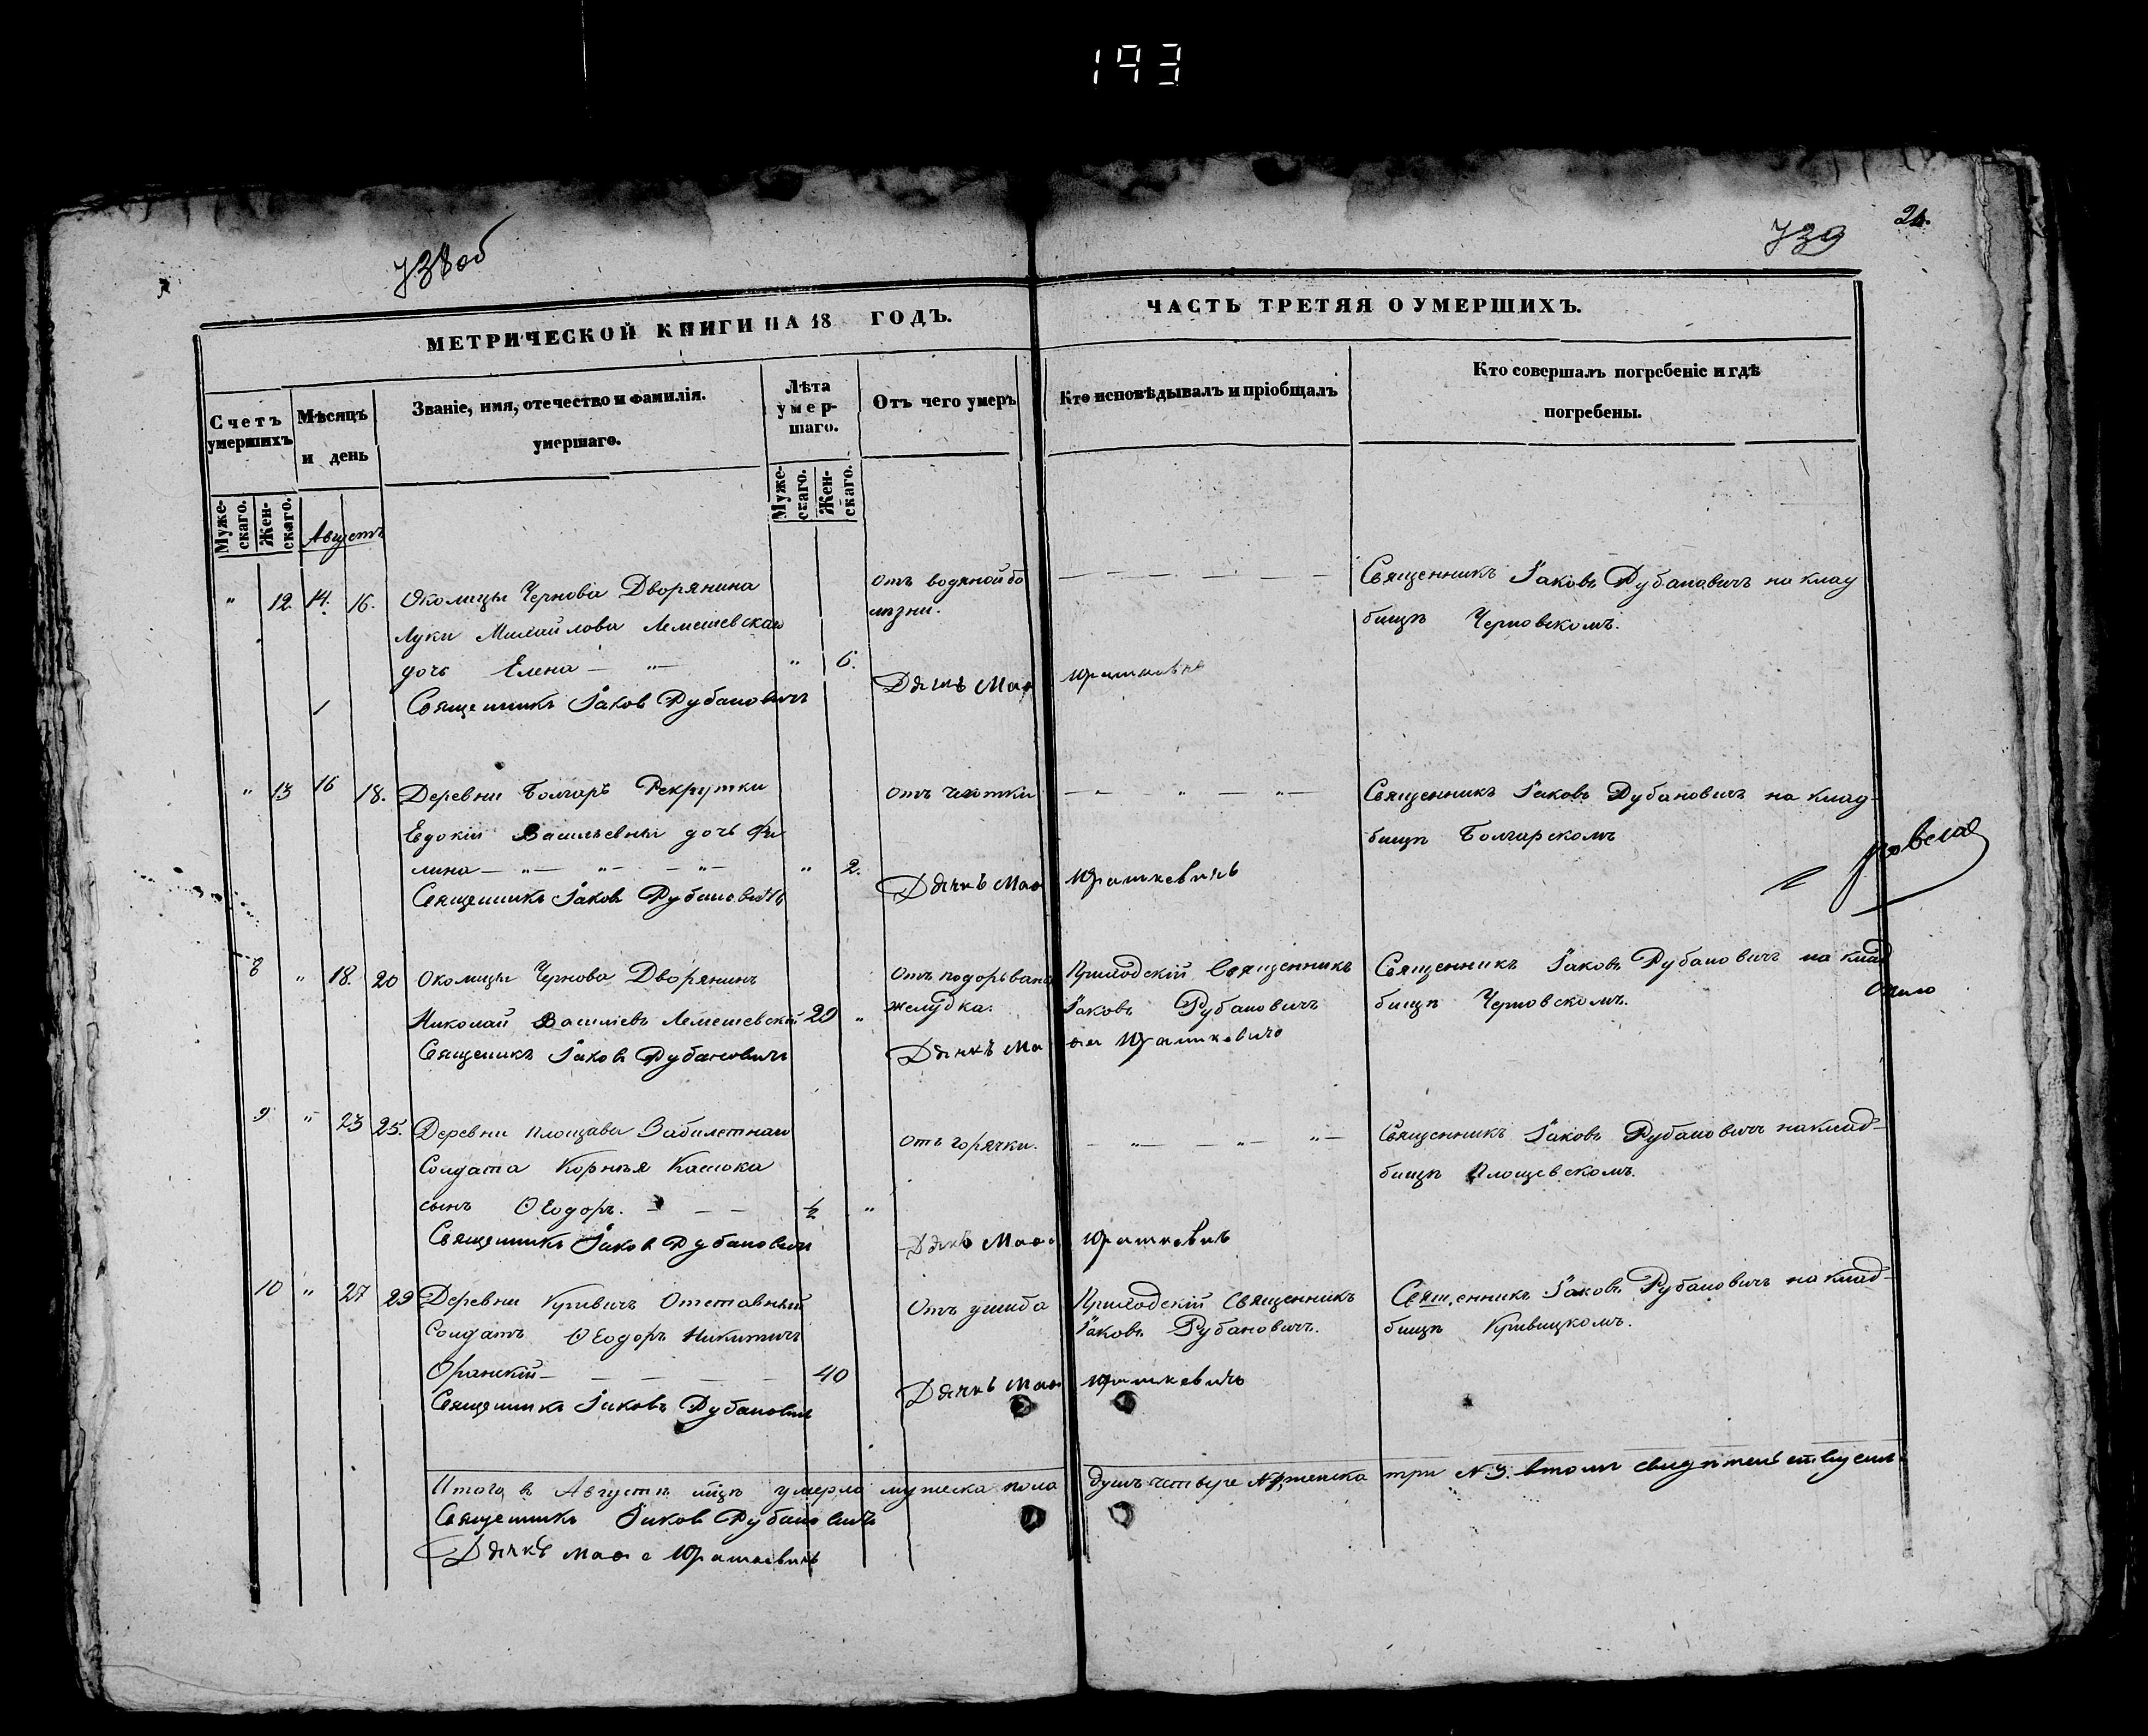 193
738 об
739
21.
МЕТРИЧЕСКОЙ КНИГИ НА 18 ГОДЪ.
ЧАСТЬ ТРЕТЯЯ О УМЕРШИХЪ.
Счетъ умершихъ
Мѣсяцъ и день
Званіе, имя, отечество и фамилія.
умершаго.
Лѣта умер-шаго.
Отъ чего умеръ
Кто исповѣдывалъ и пріобщалъ
Кто совершалъ погребеніе и гдѣ
погребены.
Муже-скаго.
Жен-скаго.
Августъ
Муже-скаго.
Жен-скаго.
" 12. 14. 16. Околицы Чернова Дворянина
Луки Михайлова Лемешевскаго
дочь Елена — " — " 6.
Священникъ Іаковъ Рубановичъ
отъ водяной бо
лѣзни.
Дячкъ
Священникъ Іаковъ Рубановичъ на клад
бищѣ Черновскомъ.
" 13 16 18. Деревни Болгаръ Рекрутки
Евдокіи Васильевны дочь Фи
лина — " — " — " — " 2.
Священникъ Іаковъ Рубановичъ
отъ чахотки
Дячкъ Юрашкевичъ
Священникъ Іаковъ Рубановичъ на клад-
бищѣ Болгарскомъ
8 " 18. 20 Околицы Чернова Дворянинъ
Николай Василіевъ Лемешевскій 29 "
Священикъ Іаковъ Рубановичъ
Отъ подорвана
желудка.
Дячкъ Юрашкевичъ
Приходскій Священникъ
Іаковъ Рубановичъ
Священникъ Іаковъ Рубановичъ на клад
бищѣ Черновскомъ.
9 " 23 25. Деревни Площава Забилетнаго
Солдата Корнѣя Касюка
сынъ Ѳеодоръ. — — — ½ "
Священникъ Іаковъ Рубановичъ
Отъ горячки.
Дячкъ Юрашкевичъ
Священникъ Іаковъ Рубановичъ на клад-
бищѣ Площевскомъ.
10 " 27 29 Деревни Кривичъ Отставный
Солдатъ Ѳеодоръ Никитичъ
Оранскій — — — — — 40
Священникъ Іаковъ Рубановичъ
Отъ ушиба
Дячкъ Юрашкевичъ
Приходскій Священникъ
Іаковъ Рубановичъ.
Священникъ Іаковъ Рубановичъ на клад-
бищѣ Кривицкомъ.
Итого въ Августѣ мцѣ умерло мужеска пола душъ четыре женска три N 3. въ томъ свидѣтельствуемъ
Священникъ Іаковъ Рубановичъ
Дячкъ Юрашкевичъ